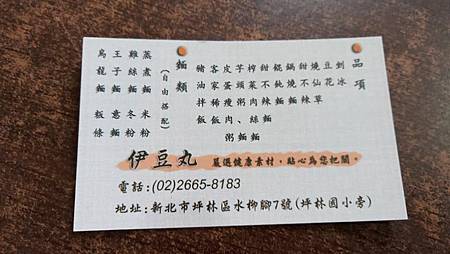 品項
剉冰
豆花
燒仙草
甜不辣
鍋燒麵
餛飩麵
甜不辣麵
榨菜肉絲麵
芋頭粥、麵
皮蛋瘦肉粥
客家稀飯
豬油拌飯
麵類
(自由搭配)
蒸煮麵 米粉
雞絲麵 冬粉
王子麵 意麵
烏龍麵 粄條
伊豆丸 嚴選健康素材，貼心為您把關。
電話:(02)2665-8183
地址:新北市坪林區水柳腳7號(坪林國小旁)